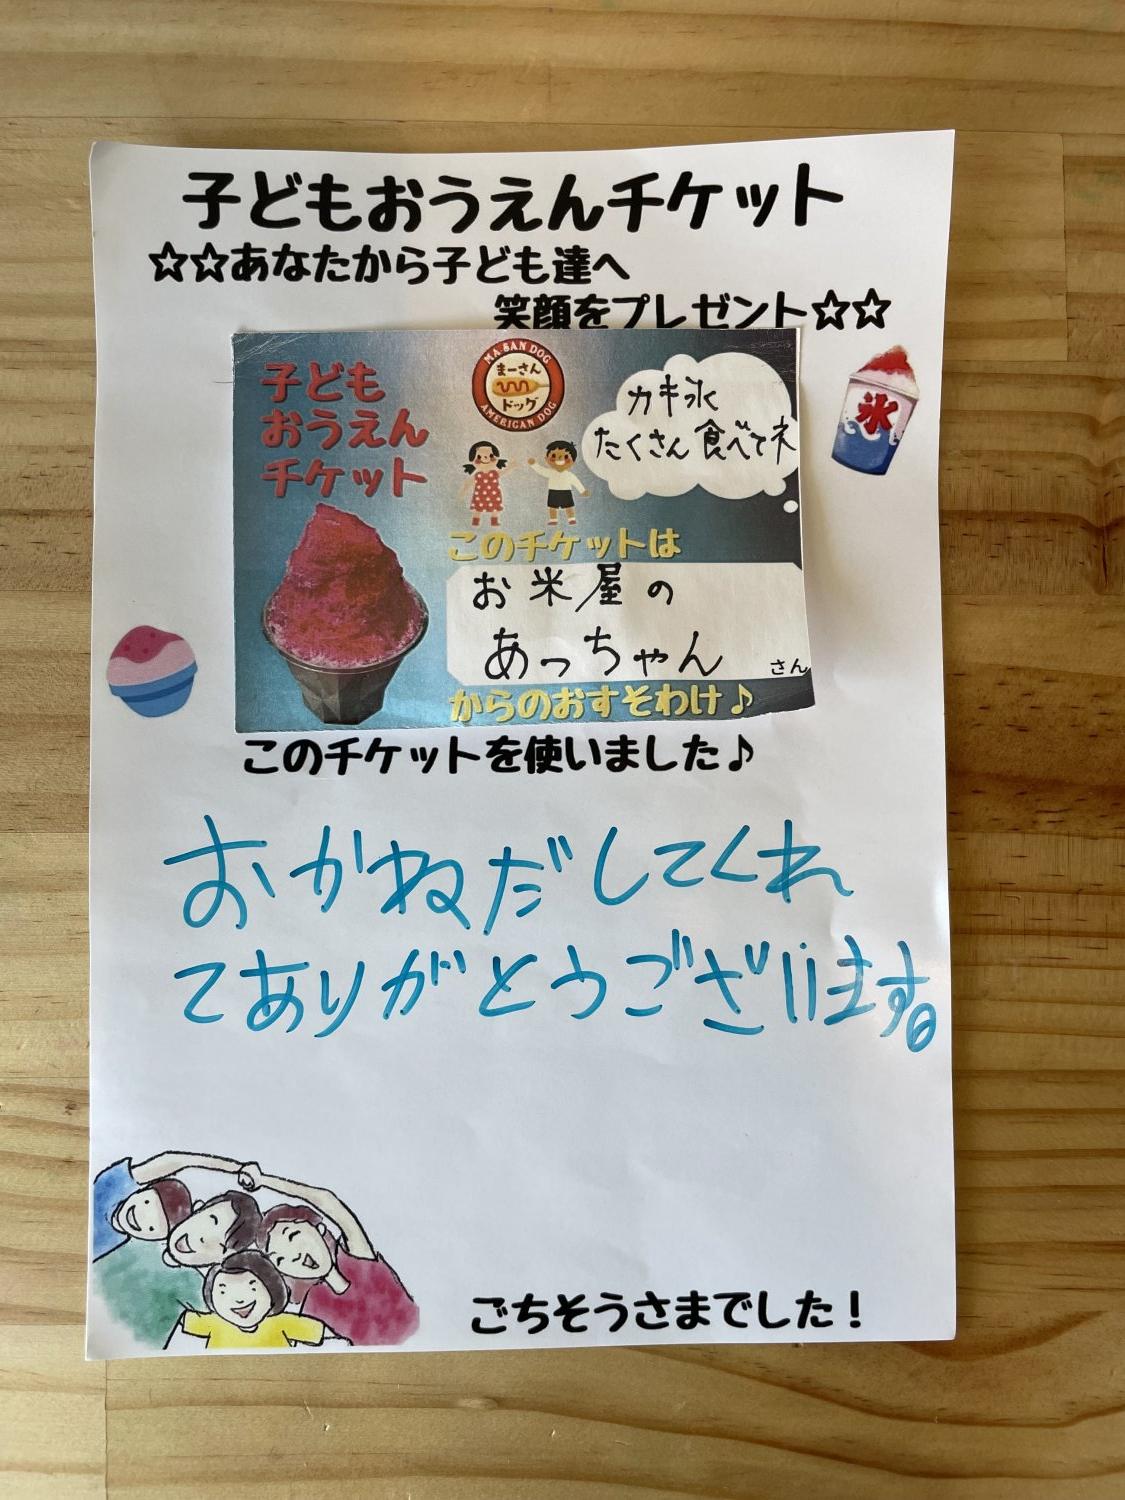 子どもおうえんチケット
☆☆あなたから子ども達へ
笑顔をプレゼント☆☆
氷
子ども
おうえん
チケット
MA.SAN DOG
まーさん
ドッグ
AMERICAN DOG
カキ氷
たくさん食べてネ
このチケットは
お米屋の
あっちゃん
さん
からのおすそわけ♪
このチケットを使いました♪
おかねだしてくれ
てありがとうございます。
ごちそうさまでした!